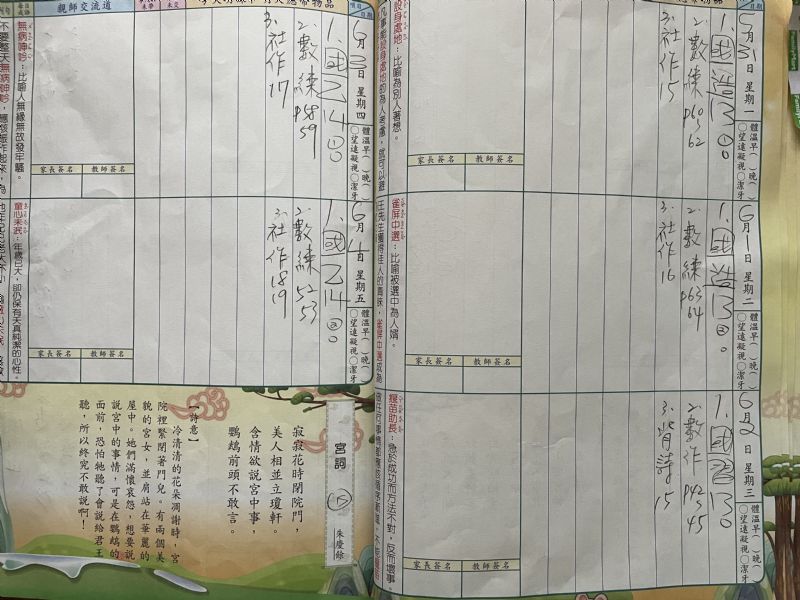 5月31日 星期一
體溫早( )晚( )
○望遠凝視○潔牙
1. 國造13
2. 數練p60 62
3. 社作15
家長簽名 教師簽名
設身處地:比喻為別人著想。
6月1日 星期二
體溫早( )晚( )
○望遠凝視○潔牙
1. 國造13
2. 數練p63 64
3. 社作16
家長簽名 教師簽名
雀屏中選:比喻被選中為人婿。
6月2日 星期三
體溫早( )晚( )
○望遠凝視○潔牙
1. 國習13
2. 數作p42 45
3. 背詩15
家長簽名 教師簽名
揠苗助長:急於成功而方法不對,反而壞事
親師交流道
6月3日 星期四
體溫早( )晚( )
○望遠凝視○潔牙
1. 國乙14
2. 數練p58 59
3. 社作17
家長簽名 教師簽名
無病呻吟:比喻人無緣無故發牢騷。
6月4日 星期五
體溫早( )晚( )
○望遠凝視○潔牙
1. 國乙14
2. 數練52 53
3. 社作18 19
家長簽名 教師簽名
童心未泯:年歲已大,卻仍保有天真純潔的心性。
宮詞 15 朱慶餘
寂寂花時閉院門,
美人相並立瓊軒。
含情欲說宮中事,
鸚鵡前頭不敢言。
【詩意】
冷清清的花朵凋謝時,宮
院裡緊閉著門兒。有兩個美
貌的宮女,並肩站在華麗的
屋中。她們滿懷哀怨,想要說
說宮中的事情,可是在鸚鵡的
面前,恐怕牠聽了會說給君王
聽,所以終究不敢說啊!